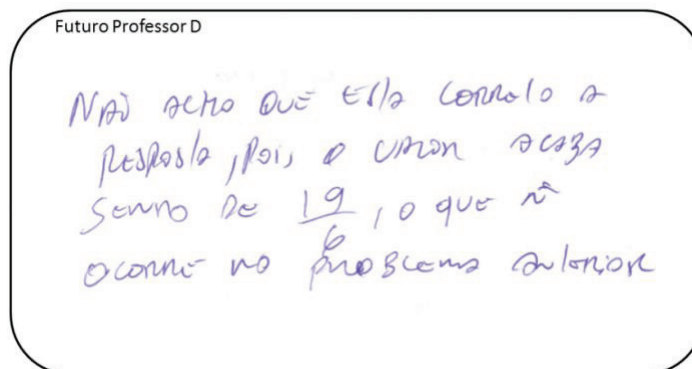 Futuro Professor D
NÃO ACHO QUE ESTÁ CORRETO A
RESPOSTA, POIS, O VALOR ACABA
SENDO DE 19/6, O QUE Ñ
OCORRE NO PROBLEMA ANTERIOR